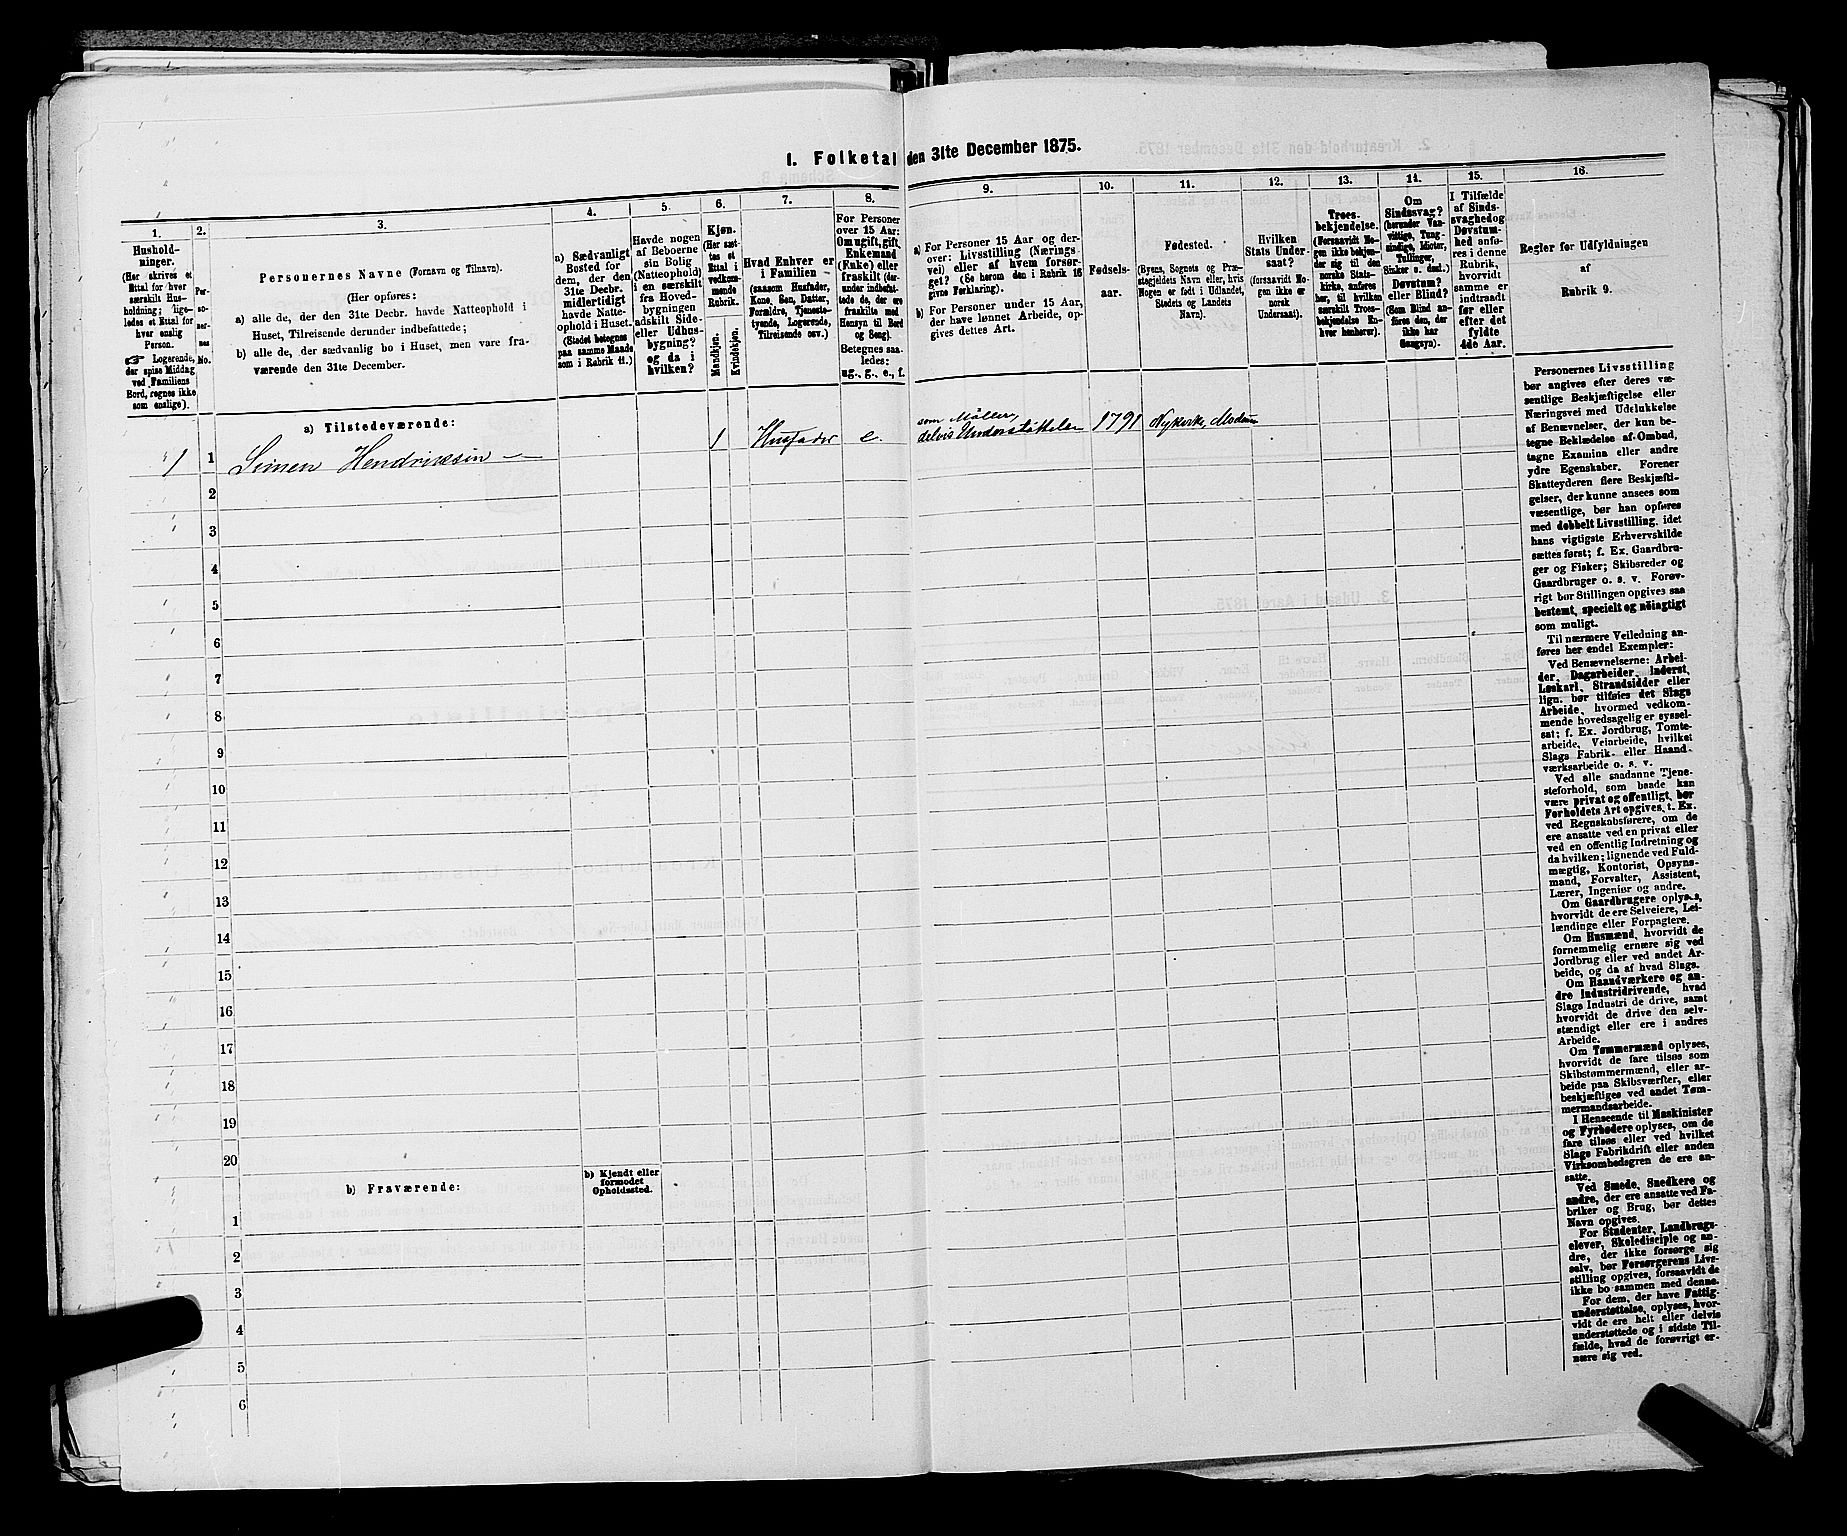 1. Folketal den 31te December 1875.
1.
Hushold-
ninger.
(Her skrives et
Ettal for hver
særskilt Hus-
holdning; lige-
ledes et Ettal for
hver enslig
Person.
☞ Logerende,
der spise Middag
ved Familiens
Bord, regnes ikke
som enslige).
2.
Per-
so-
ner-
nes
No.
3.
Personernes Navne (Fornavn og Tilnavn).
(Her opføres:
a) alle de, der den 31te Decbr. havde Natteophold i
Huset, Tilreisende derunder indbefattede;
b) alle de, der sædvanlig bo i Huset, men vare fra-
værende den 31te December.
4.
a) Sædvanligt
Bosted for
dem, der den
31te Decbr.
midlertidigt
havde Natte-
ophold i Huset.
(Stedet betegnes
paa samme Maade
som i Rubrik 11.)
5.
Havde nogen
af Beboerne
sin Bolig
(Natteophold)
i en særskilt
fra Hoved-
bygningen
adskilt Side-
eller Udhus-
bygning?
og da i
hvilken?
6.
Kjøn.
(Her sæt-
tes et
Ettal i
vedkom-
mende
Rubrik.
Mandkjøn.
Kvindekjøn.
7.
Hvad Enhver er
i Familien
(saasom Husfader,
Kone, Søn, Datter,
Forældre, Tjeneste-
tyende, Logerende,
Tilreisende osv.)
8.
For Personer
over 15 Aar:
Om ugift, gift,
Enkemand
(Enke) eller
fraskilt (der-
under indbefat-
tede de, der ere
fraskilte med
Hensyn til Bord
og Seng).
Betegnes saa-
ledes:
ug., g., e., f.
9.
a) For Personer 15 Aar og der-
over: Livsstilling (Nærings
vei) eller af hvem forsør-
get? (Se herom den i Rubrik 16
givne Forklaring).
b) For Personer under 15 Aar,
der have lønnet Arbeide, op-
gives dettes Art.
10.
Fødsels-
aar.
11.
Fødested.
(Byens, Sognets og Præ-
stegjeldets Navn eller, hvis
Nogen er født i Udlandet,
Stedets og Landets
Navn).
12.
Hvilken
Stats Under-
saat?
(forsaavidt No-
gen ikke er
norsk
Undersaat).
13.
Troes-
bekjendelse.
(Forsaavidt No-
gen ikke bekjen-
der sig til den
norske Stats-
kirke, anføres
her, til hvilken
særskilt Troes-
bekjendelse En-
hver henhører).
14.
Om
Sindssvag?
(herunder Van-
vittige, Tung-
sindige, Idioter,
Tullinger,
Sinker o. desl.)
Døvstum?
eller Blind?
(Som Blind an-
føres den, der
ikke har
Gangsyn).
15.
I Tilfælde
af Sinds-
svaghed og
Døvstum-
hed anfø-
res i denne
Rubrik,
hvorvidt
samme er
indtraadt
før eller
efter det
fyldte
4de Aar.
16.
Regler for Udfyldningen
af
Rubrik 9.
a) Tilstedeværende:
1 1 Simen Hendriksen 1 Husfader e. som Møller, delvis Understøttelse 1791 Nykirke, Modum
2
3
4
5
6
7
8
9
10
11
12
13
14
15
16
17
18
19
20
b) Fraværende:
b) Kjendt eller
formodet
Opholdssted.
1
2
3
4
5
6
Personernes Livsstilling
bør angives efter deres væ-
sentlige Beskjæftigelse eller
Næringsvei med Udelukkelse
af Benævnelser, der kun be-
tegne Beklædelse af Ombud,
tagne Examina eller andre
ydre Egenskaber. Forener
Skatteyderen flere Beskjæfti-
gelser, der kunne ansees som
væsentlige, bør han opføres
med dobbelt Livsstilling, idet
hans vigtigste Erhvervskilde
sættes først; f. Ex. Gaardbru-
ger og Fisker; Skibsreder og
Gaardbruger o. s. v. Forøv-
rigt bør Stillingen opgives saa
bestemt, specielt og nøiagtigt
som muligt.
Til nærmere Veiledning an-
føres her endel Exempler:
Ved Benævnelserne: Arbei-
der, Dagarbeider, Inderst,
Løskarl, Strandsidder eller
lign. bør tilføies det Slags
Arbeide, hvormed vedkom-
mende hovedsagelig er syssel-
sat; f. Ex. Jordbrug, Tomte-
arbeide, Veiarbeide, hvilket
Slags Fabrik- eller Haand-
værksarbeide o. s. v.
Ved alle saadanne Tjene-
steforhold, som baade kan
være privat og offentligt, bør
Forholdets Art opgives, t. Ex.
ved Regnskabsførere, om de
ere ansatte ved en privat eller
ved en offentlig Indretning og
da hvilken; lignende ved Fuld-
mægtig, Kontorist, Opsyns-
mand, Forvalter, Assistent,
Lærer, Ingeniør og andre.
Om Gaardbrugere oplyses,
hvorvidt de ere Selveiere, Lei-
lændinge eller Forpagtere.
Om Husmænd, hvorvidt de
fornemmelig ernære sig ved
Jordbrug eller ved andet Ar-
beide, og da af hvad Slags.
Om Haandværkere og an-
dre Industridrivende, hvad
Slags Industri de drive, samt
hvorvidt de drive den selv-
stændigt eller ere i andres
Arbeide.
Om Tømmermænd oplyses,
hvorvidt de fare tilsøs som
Skibstømmermænd, eller ar-
beide paa Skibsværfter, eller
beskjæftiges ved andet Tøm-
mermandsarbeide.
I Henseende til Maskinister
og Fyrbødere oplyses, om de
fare tilsøs eller ved hvilket
Slags Fabrikdrift eller anden
Virksomhedsgren de ere an-
satte.
Ved Smede, Snedkere og
andre, der ere ansatte ved Fa-
briker og Brug, bør dettes
Navn opgives.
For Studenter, Landbrugs-
elever, Skoledisciple og an-
dre, der ikke forsørge sig
selv, bør Forsørgerens Livs-
stilling opgives, forsaavidt de
ikke bo sammen med denne.
For dem, der have Fattig-
understøttelse, oplyses, hvor-
vidt de ere helt eller delvis
understøttede og i sidste Til-
fælde, hvad de forøvrigt er-
nære sig ved.